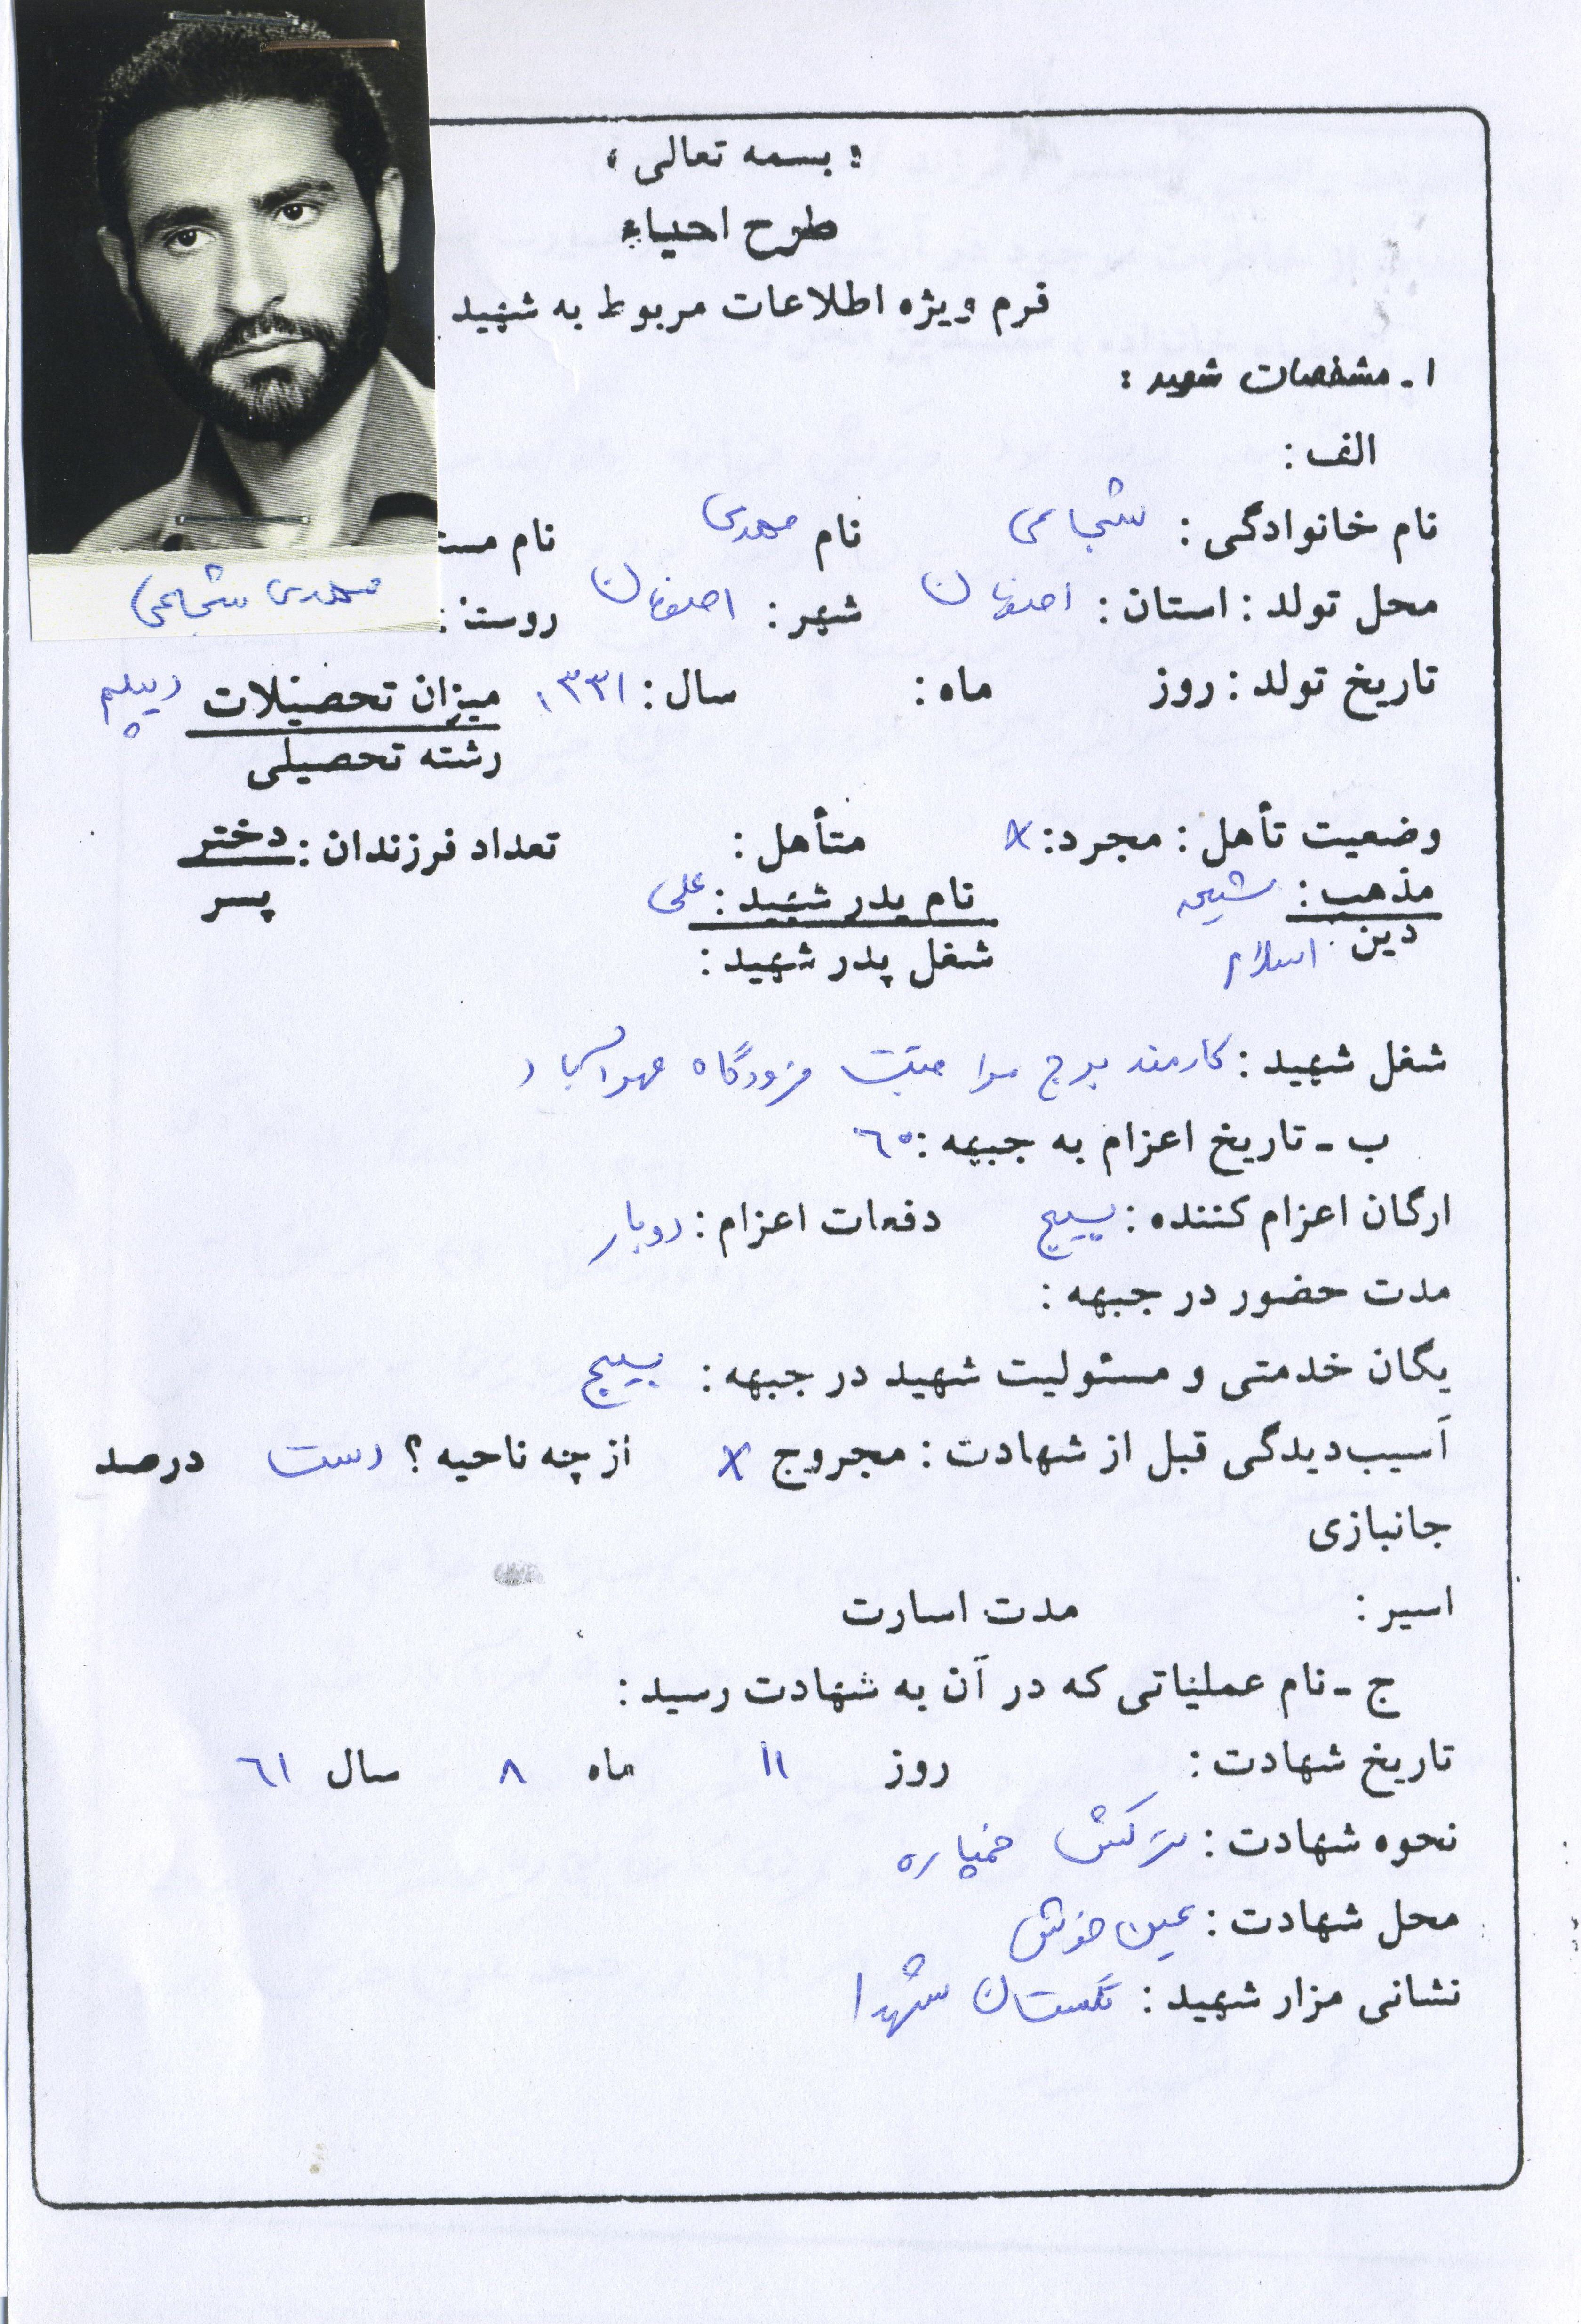 « بسمه تعالی »
طرح احیاء
فرم ویژه اطلاعات مربوط به شهید
۱ - مشخصات شهید :
الف :
نام خانوادگی : شجاعی نام مهدی نام مست
محل تولد : استان : اصفهان شهر : اصفهان روستا :
مهدی شجاعی
تاریخ تولد : روز ماه : سال : ۱۳۳۱ میزان تحصیلات دیپلم
رشته تحصیلی
وضعیت تأهل : مجرد : x متأهل : تعداد فرزندان : دختر
پسر
مذهب : شیعه نام پدر شهید : علی
دین : اسلام شغل پدر شهید :
شغل شهید : کارمند برج مراقبت فرودگاه مهرآباد
ب - تاریخ اعزام به جبهه : ٦٠
ارگان اعزام کننده : بسیج دفعات اعزام : دوبار
مدت حضور در جبهه :
یگان خدمتی و مسئولیت شهید در جبهه : بسیج
آسیب‌دیدگی قبل از شهادت : مجروح x از چه ناحیه ؟ دست درصد
جانبازی
اسیر : مدت اسارت
ج - نام عملیاتی که در آن به شهادت رسید :
تاریخ شهادت : روز ۱۱ ماه ۸ سال ٦۱
نحوه شهادت : ترکش خمپاره
محل شهادت : عین خوش
نشانی مزار شهید : گلستان شهدا